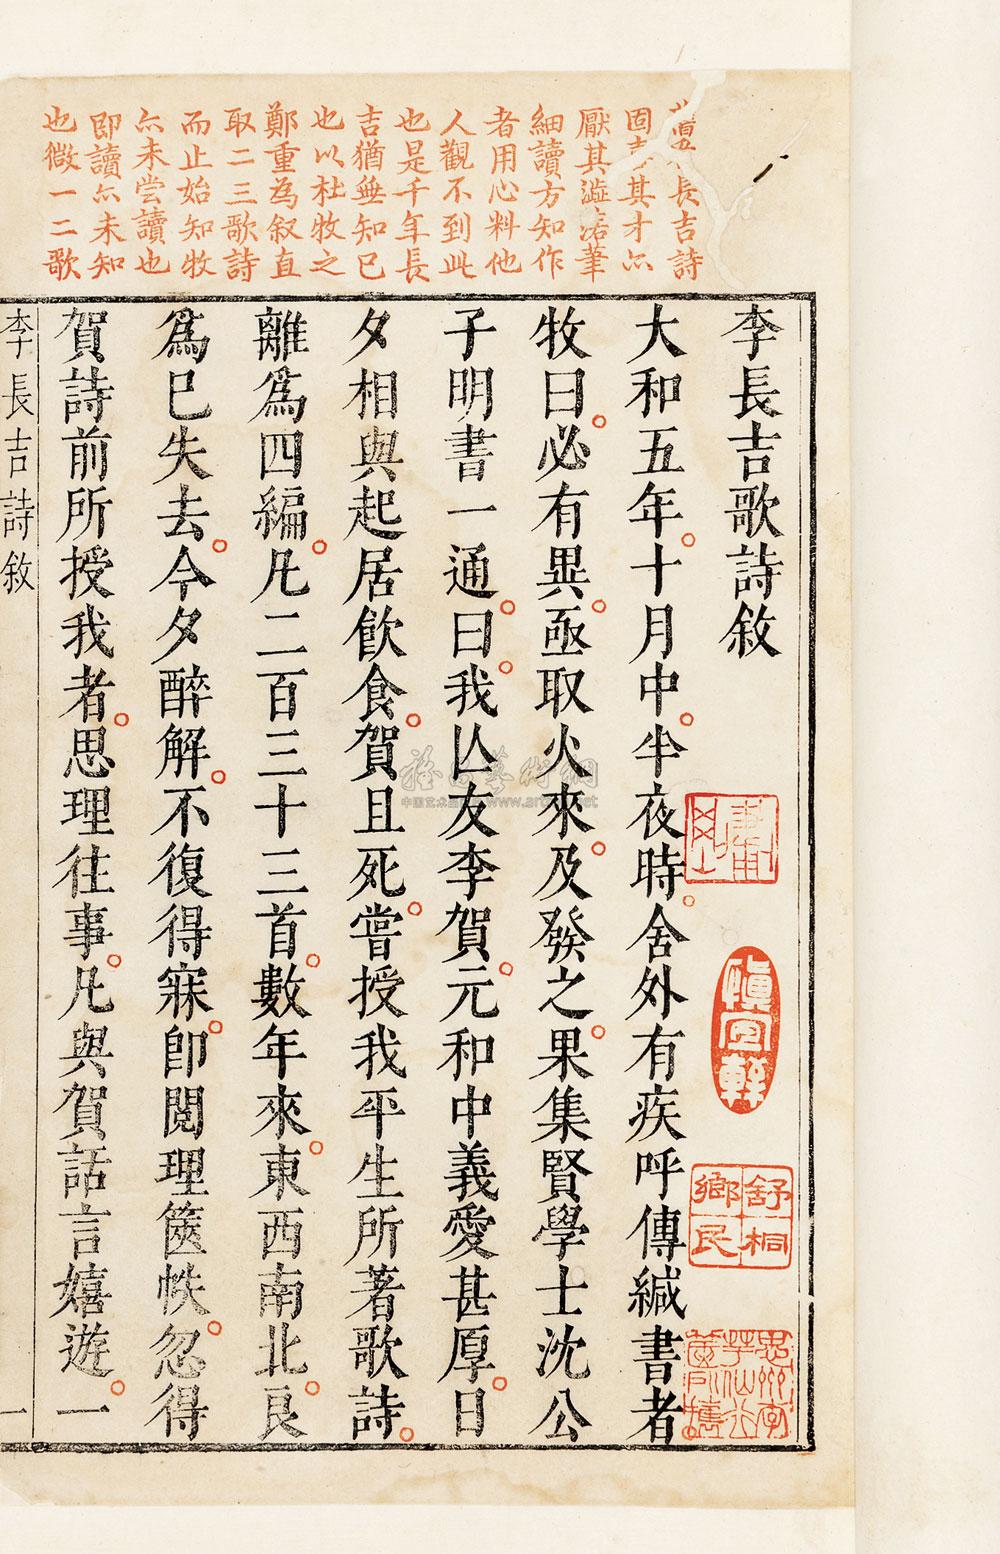 長吉詩
固其才亦
厭其澁活筆
細讀方知作
者用心料他
人觀不到此
也是千年長
吉猶無知已
也以杜牧之
鄭重為叙直
取二三歌詩
而止始知牧
亦未嘗讀也
即讀亦未知
也微一二歌
李長吉歌詩敘
大和五年十月中半夜時舍外有疾呼傳緘書者
牧曰必有異亟取火來及發之果集賢學士沈公
子明書一通曰我亾友李賀元和中義愛甚厚日
夕相與起居飲食賀且死嘗授我平生所著歌詩
離為四編凡二百三十三首數年來東西南北良
為已失去今夕醉解不復得寐卽閲理篋帙忽得
賀詩前所授我者思理往事凡與賀話言嬉遊一
李長吉詩敘
一
慎宜軒
舒桐
鄉民